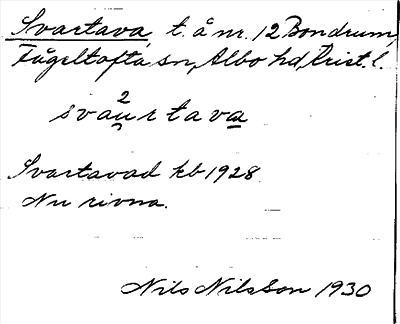 Svartava, t. å nr. 12 Bondrum,
Fågeltofta sn, Albo hd, Krist. l.
sva2urtava
Svartavad kb 1928.
Nu rivna.
Nils Nilsson 1930